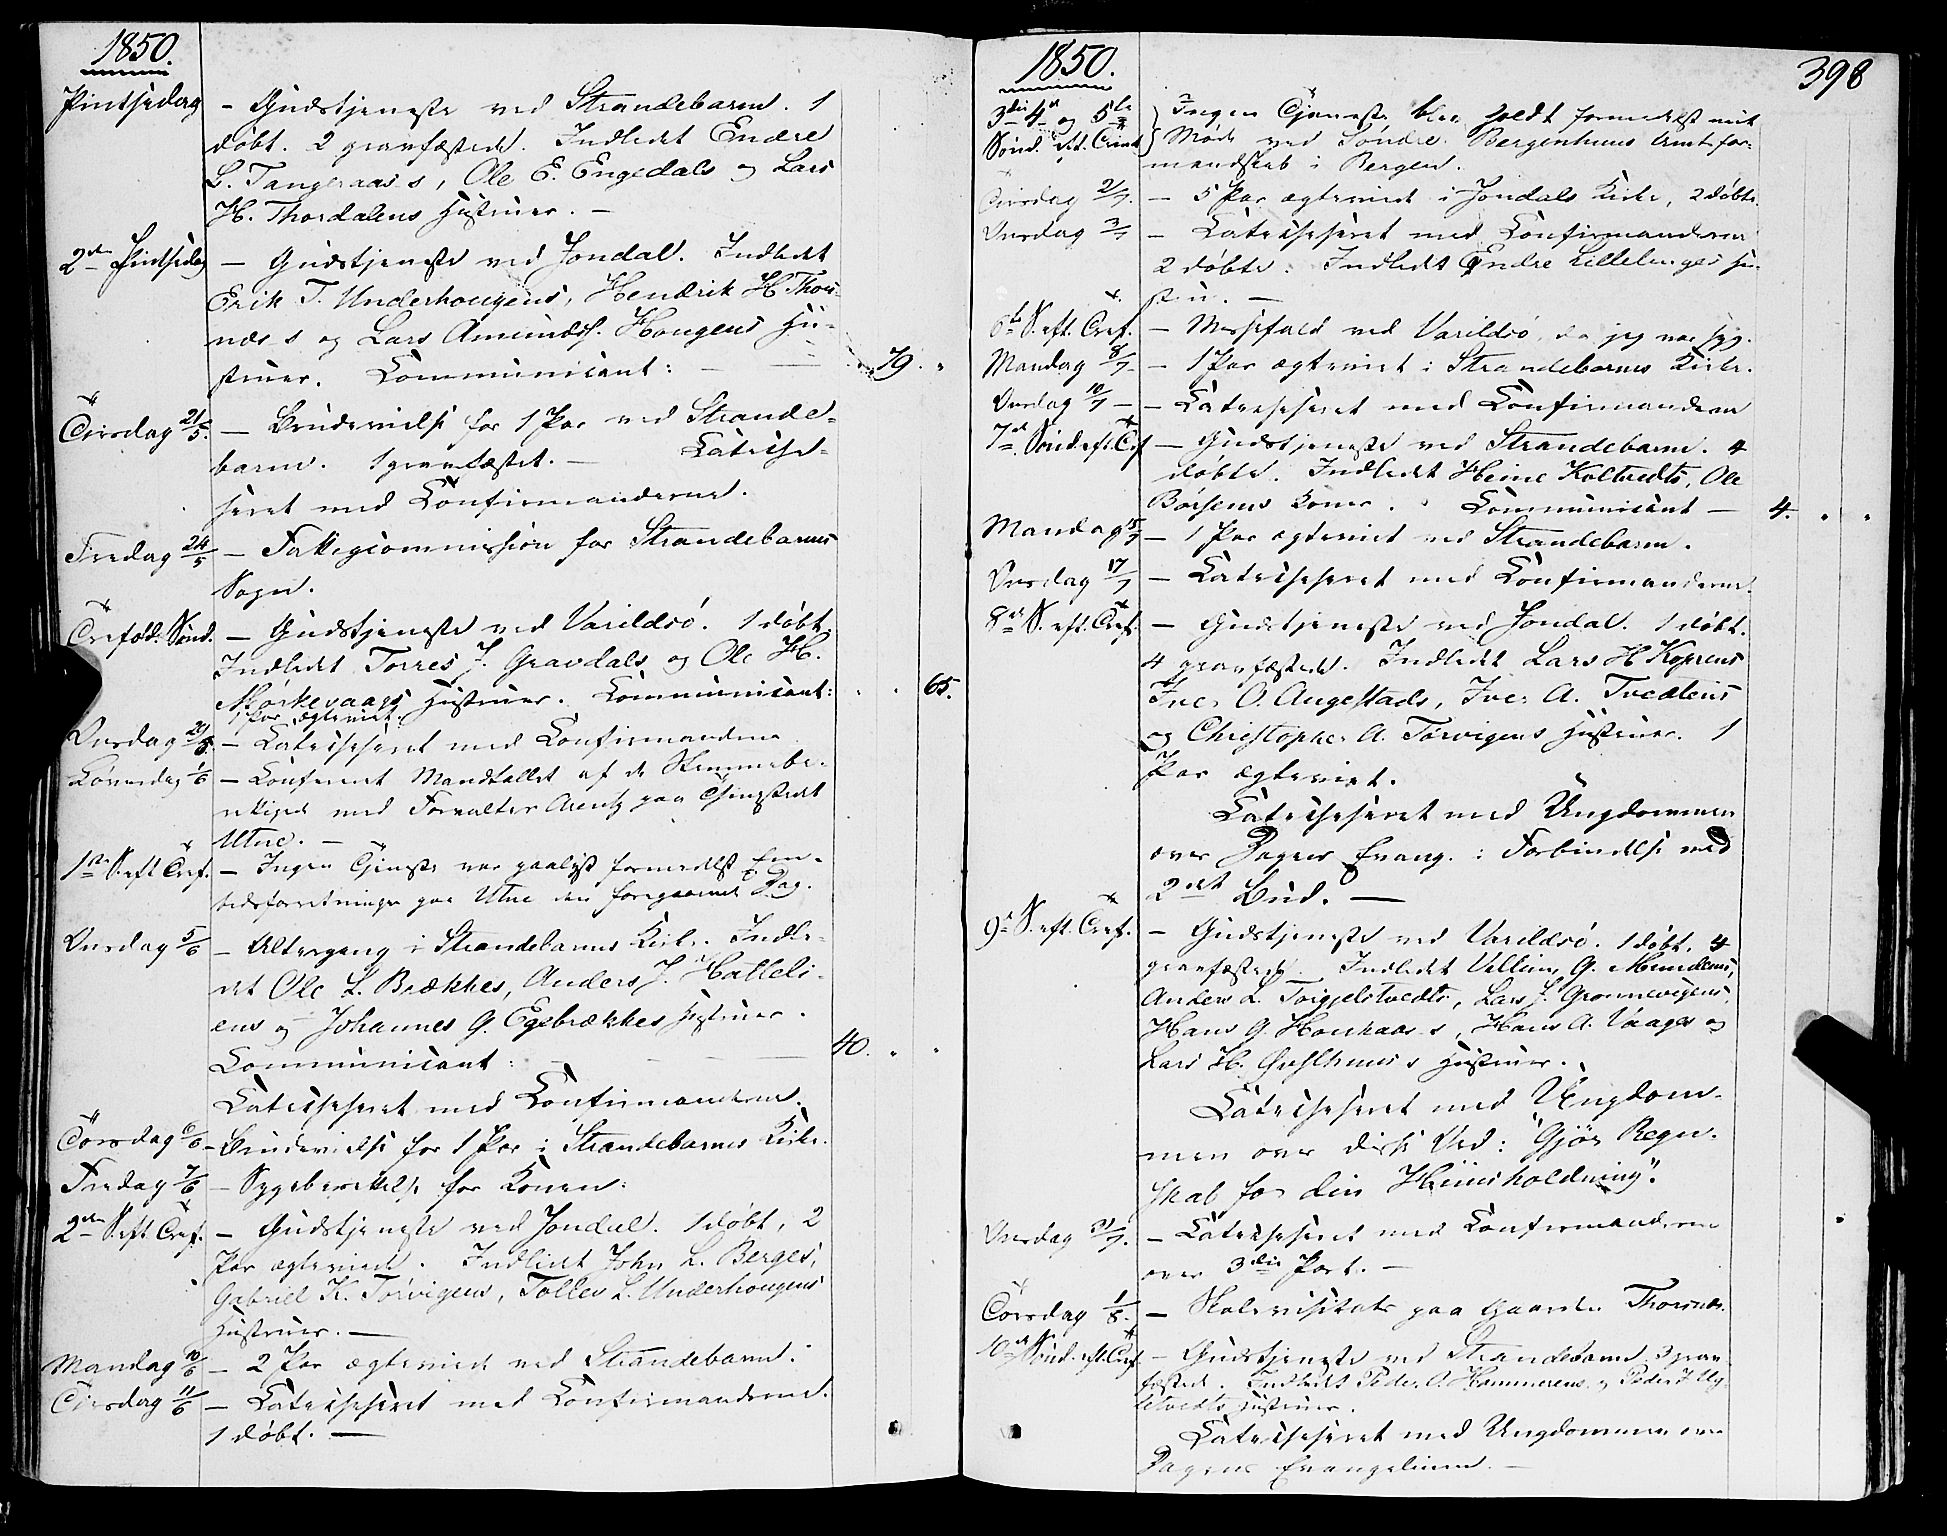 1850.
Pintsedag - Gudstjeneste ved Strandebarm. 1
døbt. 2 gravfæstede. Indledet Endre
L. Tangeraas's, Ole E. Engedals og Lars
H. Thordalens Hustruer. -
2den Pintsedag - Gudstjeneste ved Jondal. Indledet
Erik T. Underhougens, Hendrik H. Thors-
næs's og Lars Amunds. Hougens Hu-
struer. Communicant: - 79. "
Tirsdag 21/5. - Brudevielse for 1 Par ved Strande-
barm. 1 gravfæstet. - Catechi-
seret med Confirmanderne.
Fredag 24/5 - Fattigcommission for Strandebarms
Sogn.
Trefold. Sønd. - Gudstjeneste ved Varildsø. 1 døbt.
Indledt Torres J. Gravdals og Ole H.
Mørkevaags Hustruer. Communicant: " " 65.
1 Par ægteviet.
Onsdag 29/5. - Catechiseret med Confirmanderne
Løverdag 1/6 - Confereret Mandtallet af de Stemmebe-
rettigede med Forvalter Arentz paa Thingstedet
Utne. -
1ste S. eft. Tref. - Ingen Tjeneste var paalyst formedelst Em-
bedsforretninger paa Utne den foregaaende Dag.
Onsdag 5/6 - Altergang i Strandebarms Kirke. Indle-
det Ole L. Brækkes, Anders J. Hatleli-
ens og Johannes G. Egebrækkes Hustruer.
Communicant: - 40. " "
Catechiseret med Confirmanderne.
Torsdag 6/6 - Brudevielse for 1 Par i Strandebarms Kirke.
Fredag 7/6 - Sygeberettelse for Konen.
2den S. eft. Tref. - Gudstjeneste ved Jondal. 1 døbt, 2
Par ægteviede. Indledt John L. Berges,
Gabriel K. Tørvigens, Tolles L. Underhougens
Hustruer. -
Mandag 10/6 - 2 Par ægteviede ved Strandebarm.
Tirsdag 11/6 - Catechiseret med Confirmanderne.
1 døbt. -
1850. 398
3die 4de og 5te Ingen Tjeneste blev holdt formedelst mit
Sønd. eft. Trinit Møde ved Søndre Bergenhuus Amtsfor-
mandskab i Bergen.
Tirsdag 2/7. - 5 Par ægteviet i Jondals Kirke, 2 døbte.
Onsdag 3/7 - Catechiseret med Confirmanderne
2 døbte. Indledt Endre Lillelunges Hu-
stru. -
6te S. eft. Tref. - Messefald ved Varildsø, da jeg var syg.
Mandag 8/7 - 1 Par ægteviet i Strandebarms Kirke.
Onsdag 10/7 - Catechiseret med Confirmanderne
7de Sønd. eft. Tref - Gudstjeneste ved Strandebarm. 4
døbte. Indledet Heine Koltvedts, Ole
Børsens Koner. Communicant - 4. " "
Mandag 15/7 - 1 Par ægteviet ved Strandebarm.
Onsdag 17/7 - Catechiseret med Confirmanderne.
8de S. eft. Tref. - Gudstjeneste ved Jondal. 1 døbt.
4 gravfæstede. Indledt Lars H Koprens
Iver O. Augestads, Iver A. Tvedtens
og Christopher A. Tørvigens Hustruer. 1
Par ægteviet.
Catechiseret med Ungdommen
over Dagens Evang. i Forbindelse med
2det Bud. -
9de S. eft. Tref. - Gudstjeneste ved Varildsø. 1 døbt. 4
gravfæstede. Indledet Vellem G. Mundems,
Anders L. Torgjelstvedts, Lars J. Grønnevigens,
Hans G. Hovskaas's, Hans A. Vaages og
Lars H. Øvsthuus's Hustruer.
Catechiseret med Ungdom-
men over disse Ord: "Gjør Regn-
skab for din Huusholdning".
Onsdag 31/7. - Catechiseret med Confirmanderne
over 3die Part. -
Torsdag 1/8. - Skolevisitats paa Gaarden Thorsnæs.
10de Sønd. eft. Tref - Gudstjeneste ved Strandebarm 3 grav-
fæstede. Indledt Peder A. Hammerens og Peder J Ly-
tvedts Hustruer.
Catechiseret med Ungdommen over
Dagens Evangelium. -